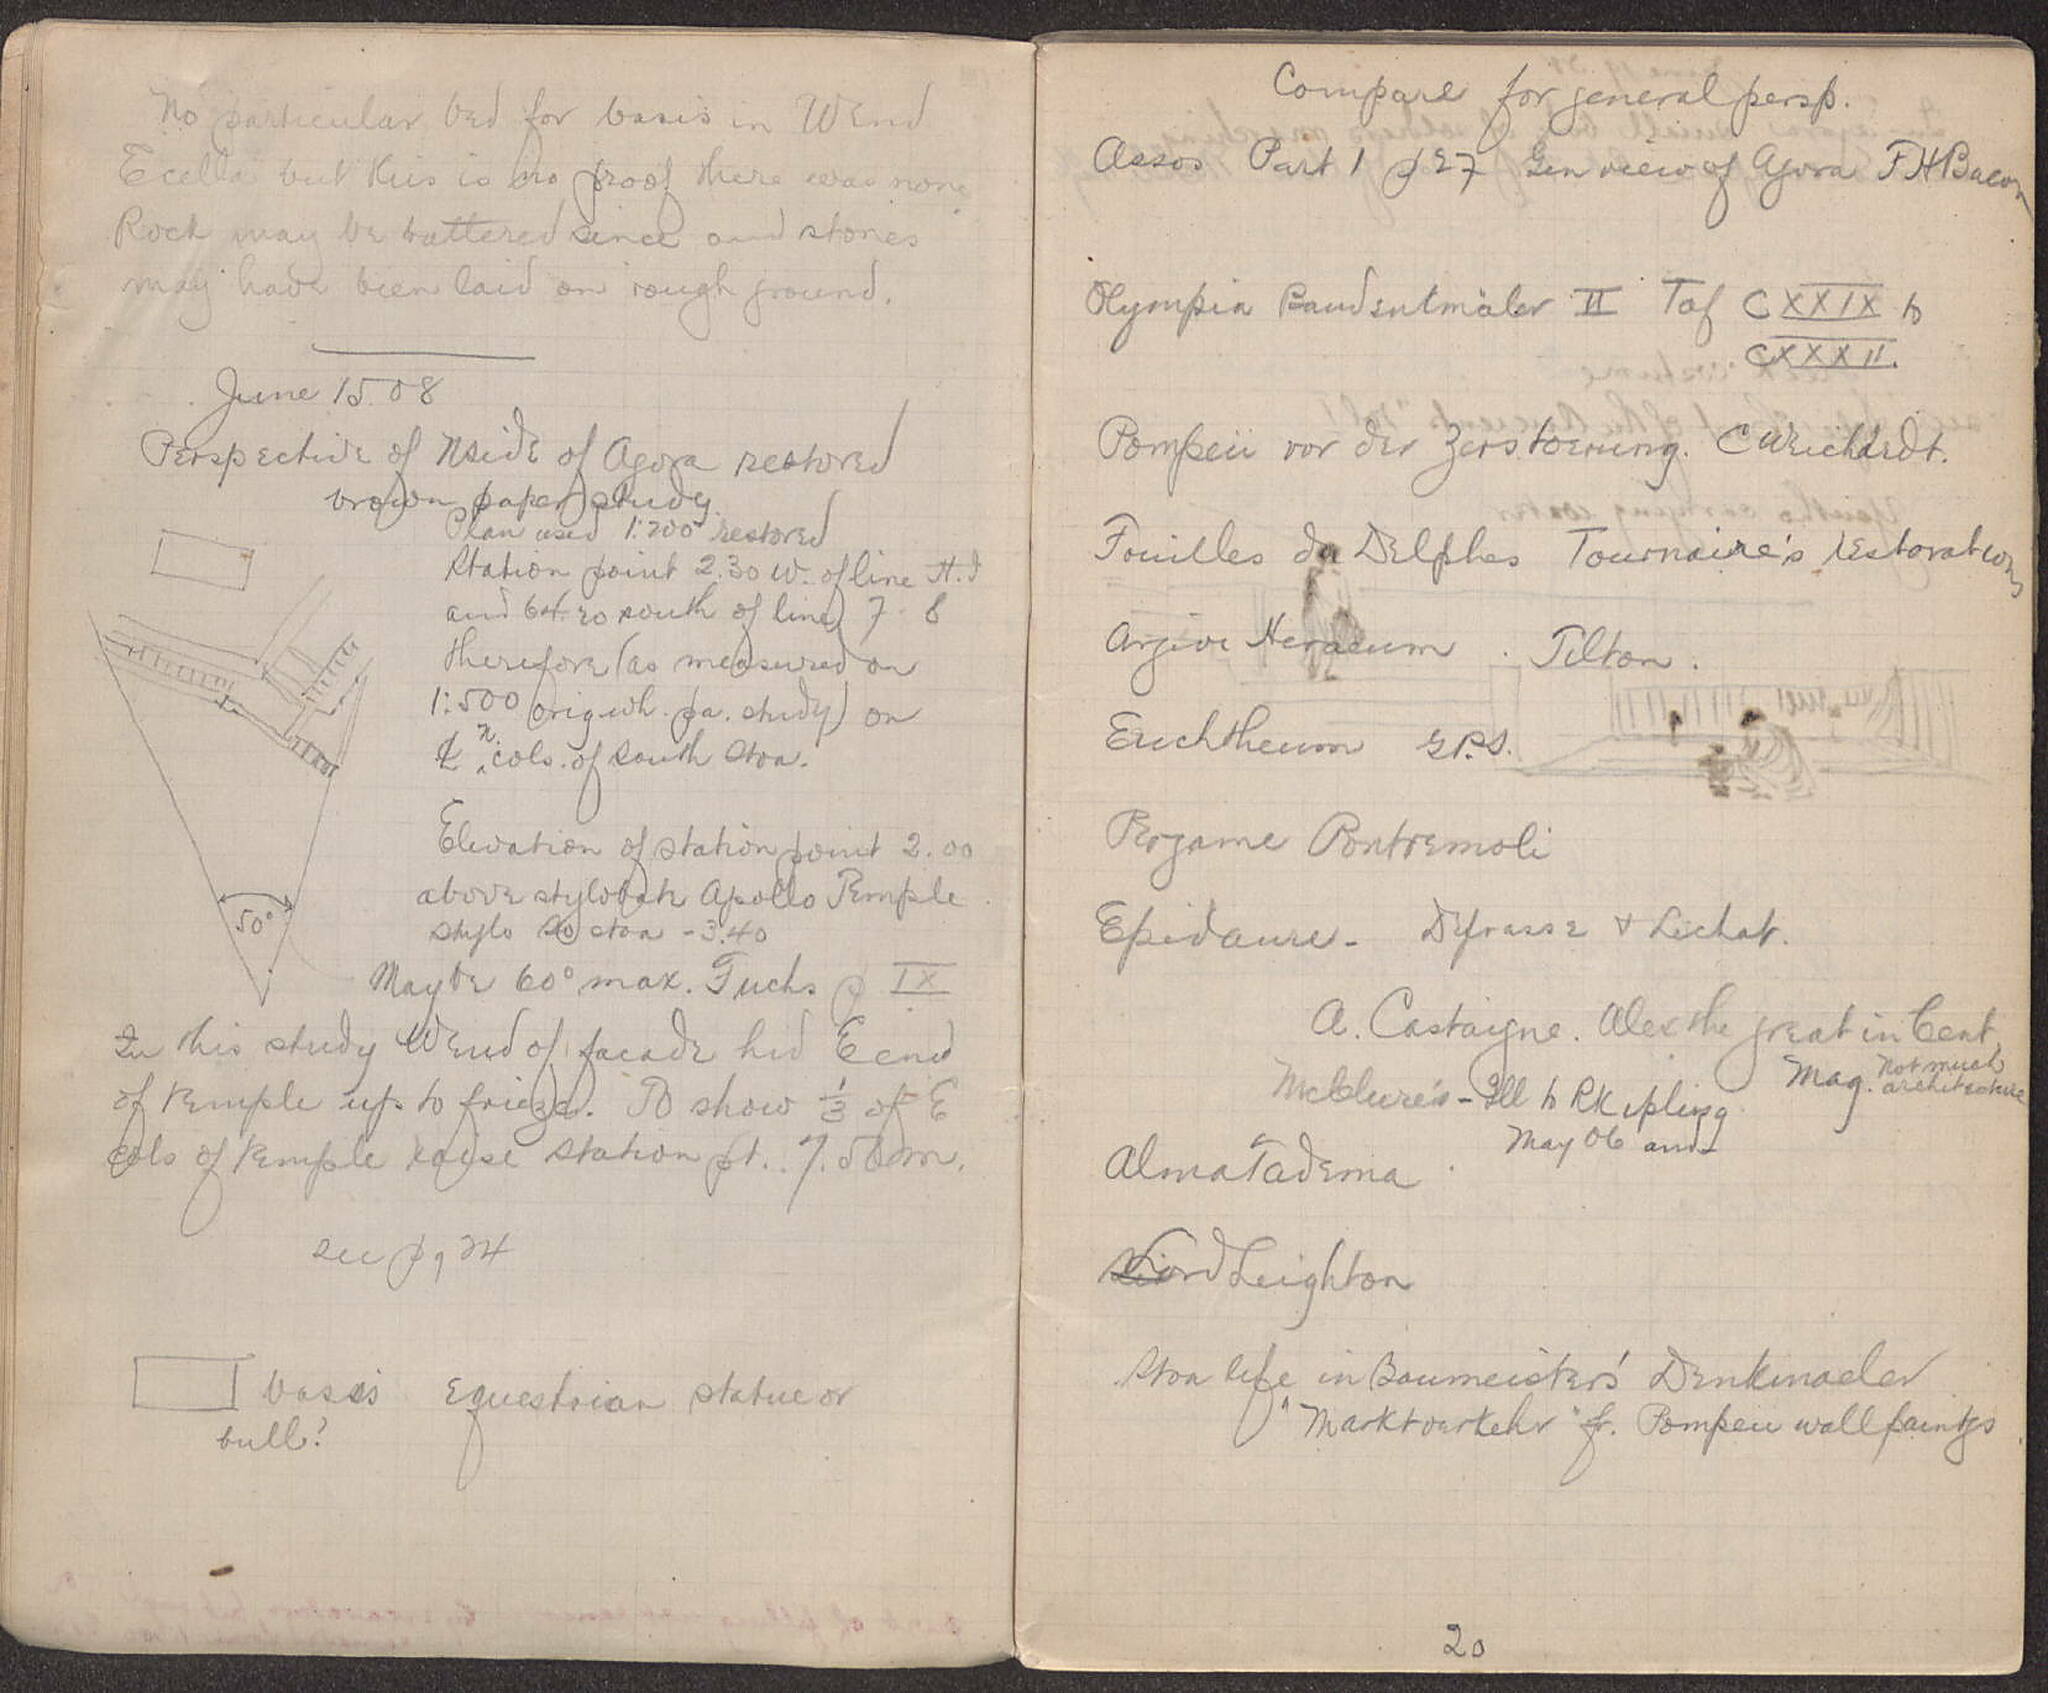 No particular bed for basis in W end
E cella but this is no proof there was none
Rock may be battered since and stones
may have been laid on rough ground.
June 15.08
Perspective of N side of Agora restored
brown paper study.
Plan used 1:200 restored
Station point 2.30 W. of line
and 64.20 south of line 7-8
therefore (as measured on
1:500 orig wh. pa. study) on
n.
cols. of south stoa.
Elevation of station point 2.00
above stylobate Apollo Temple
stylo So stoa -3.40
50°
Maybe 60° max. Fuchs p IX
In this study W end of facade hid E end
of temple up to frieze. To show 1/3 of E
cols of temple raise station pt. 7.50 m.
see pg 24
basis Equestrian statue or
bull?
Compare for general persp.
Assos Part 1 p 27 Gen view of Agora F H Bacon
Olympia Baudenkmäler II Taf CXXIX to
CXXXII.
Pompeii vor der Zerstoerung. C Weichardt.
Fouilles de Delphes Tournaire's restorations
Argive Heraeum. Tilton.
Erechtheum G.P.S.
Pergame Pontremoli
Epidaure - Defrasse & Lechat.
A. Castaigne. Alex the great in Cent.
Mag. Not much
architecture
McClure's - Ill to R Kipling
May 06 and
Alma Tadema
Lord Leighton
Stoa life in Baumeister's Denkmaeler
"Marktverkehr" fr. Pompeii wall paintgs
20